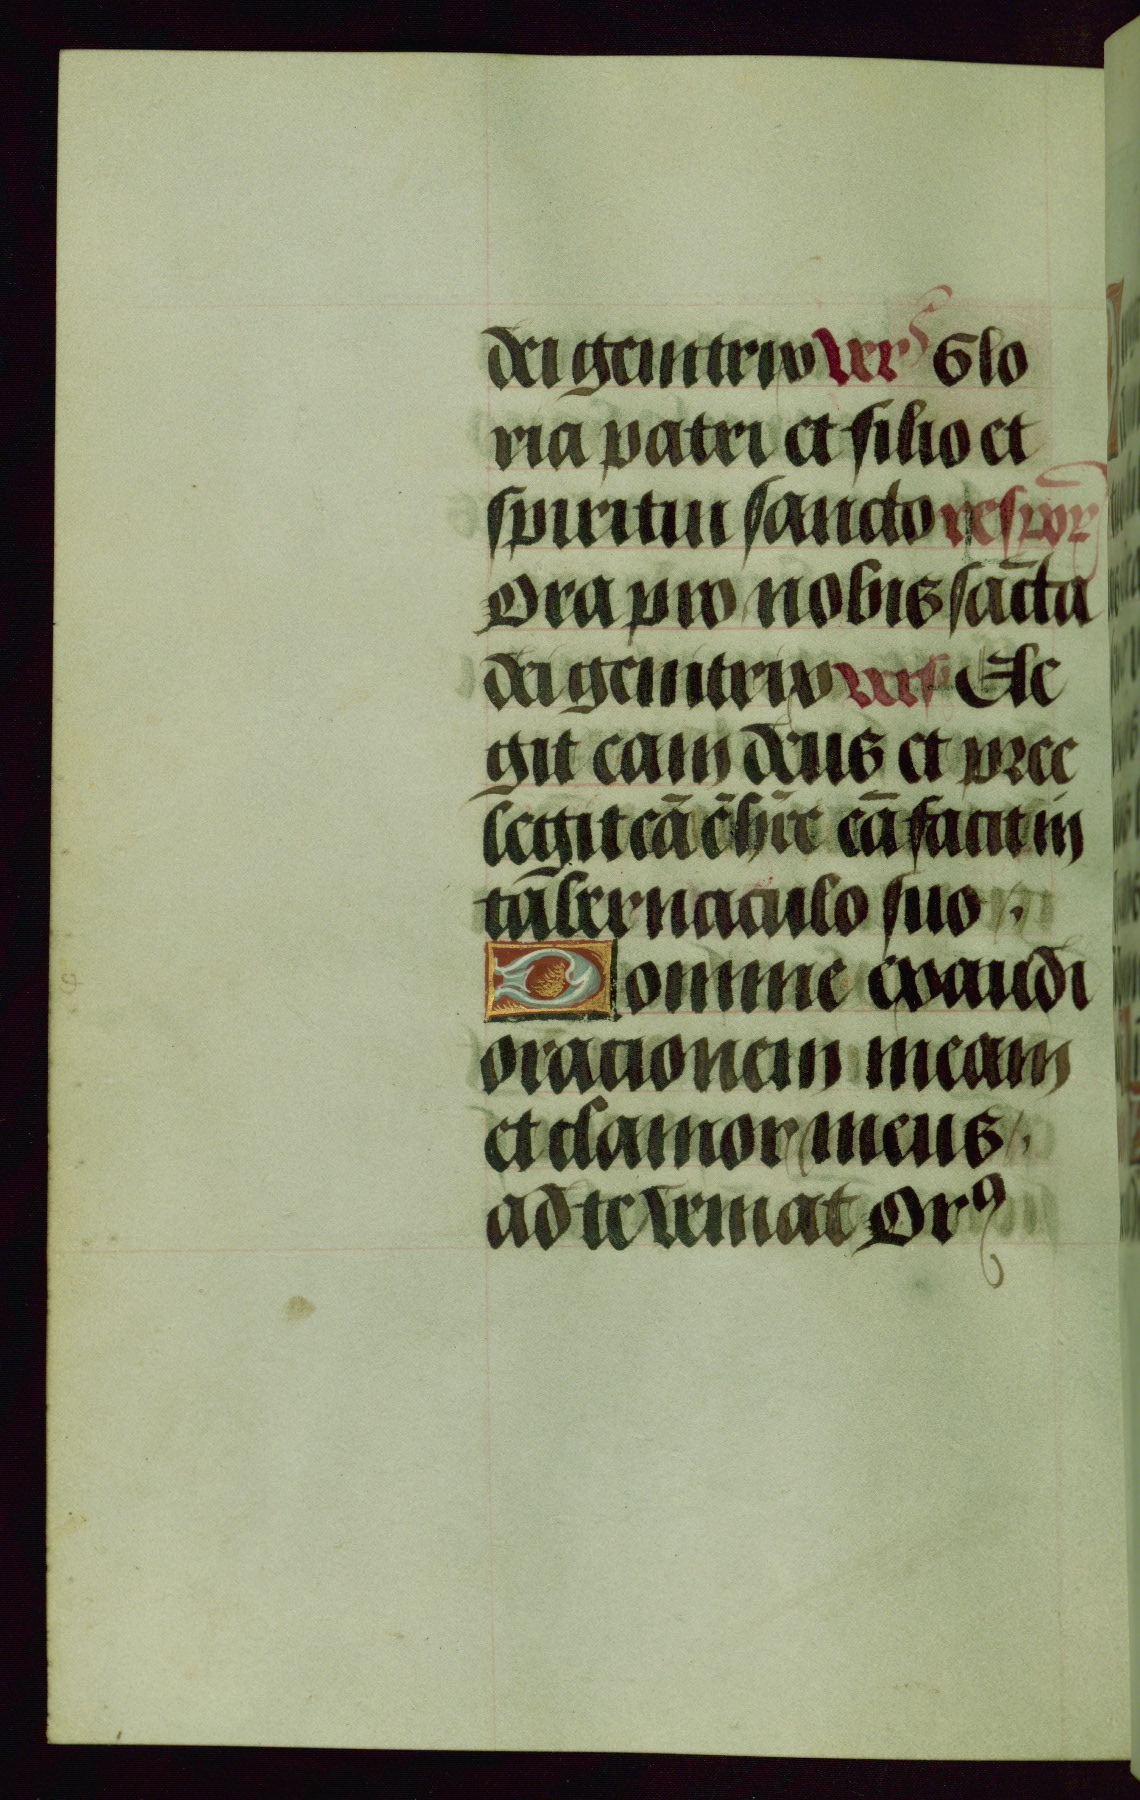 dei genitrix vers Glo
ria patri et filio et
spiritui sancto respon
Ora pro nobis sācta
dei genitrix vers Ele
git eam deus et pree
legit eā ēhītē eā facit in
tabernaculo suo
Domine exaudi
orationem meam
et clamor meus
ad te veniat Orꝰ